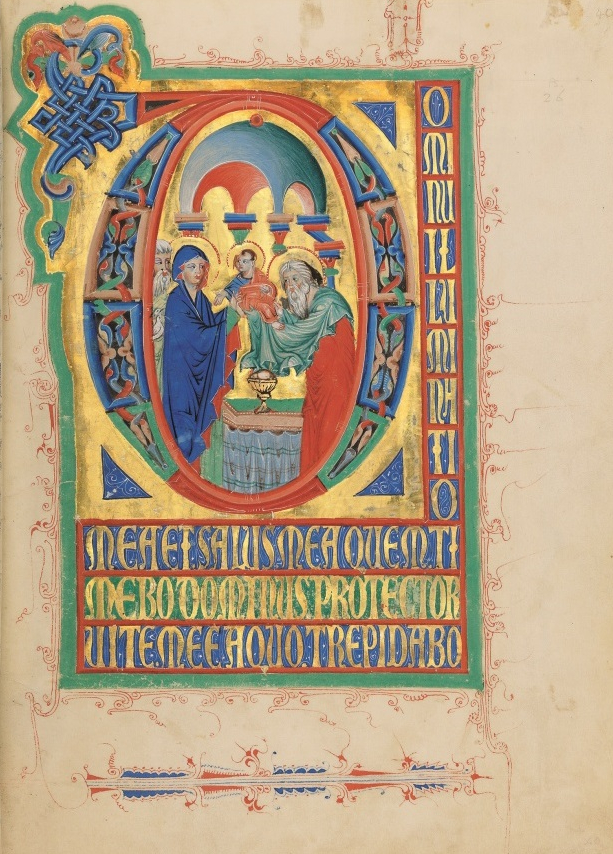 26
D
O
MI
NU
IL
LU
MI
NA
TI
O
MEA ET SALUS MEA QUEM TI
MEBO DOMINUS PROTECTOR
UITE MEE A QUO TREPIDABO